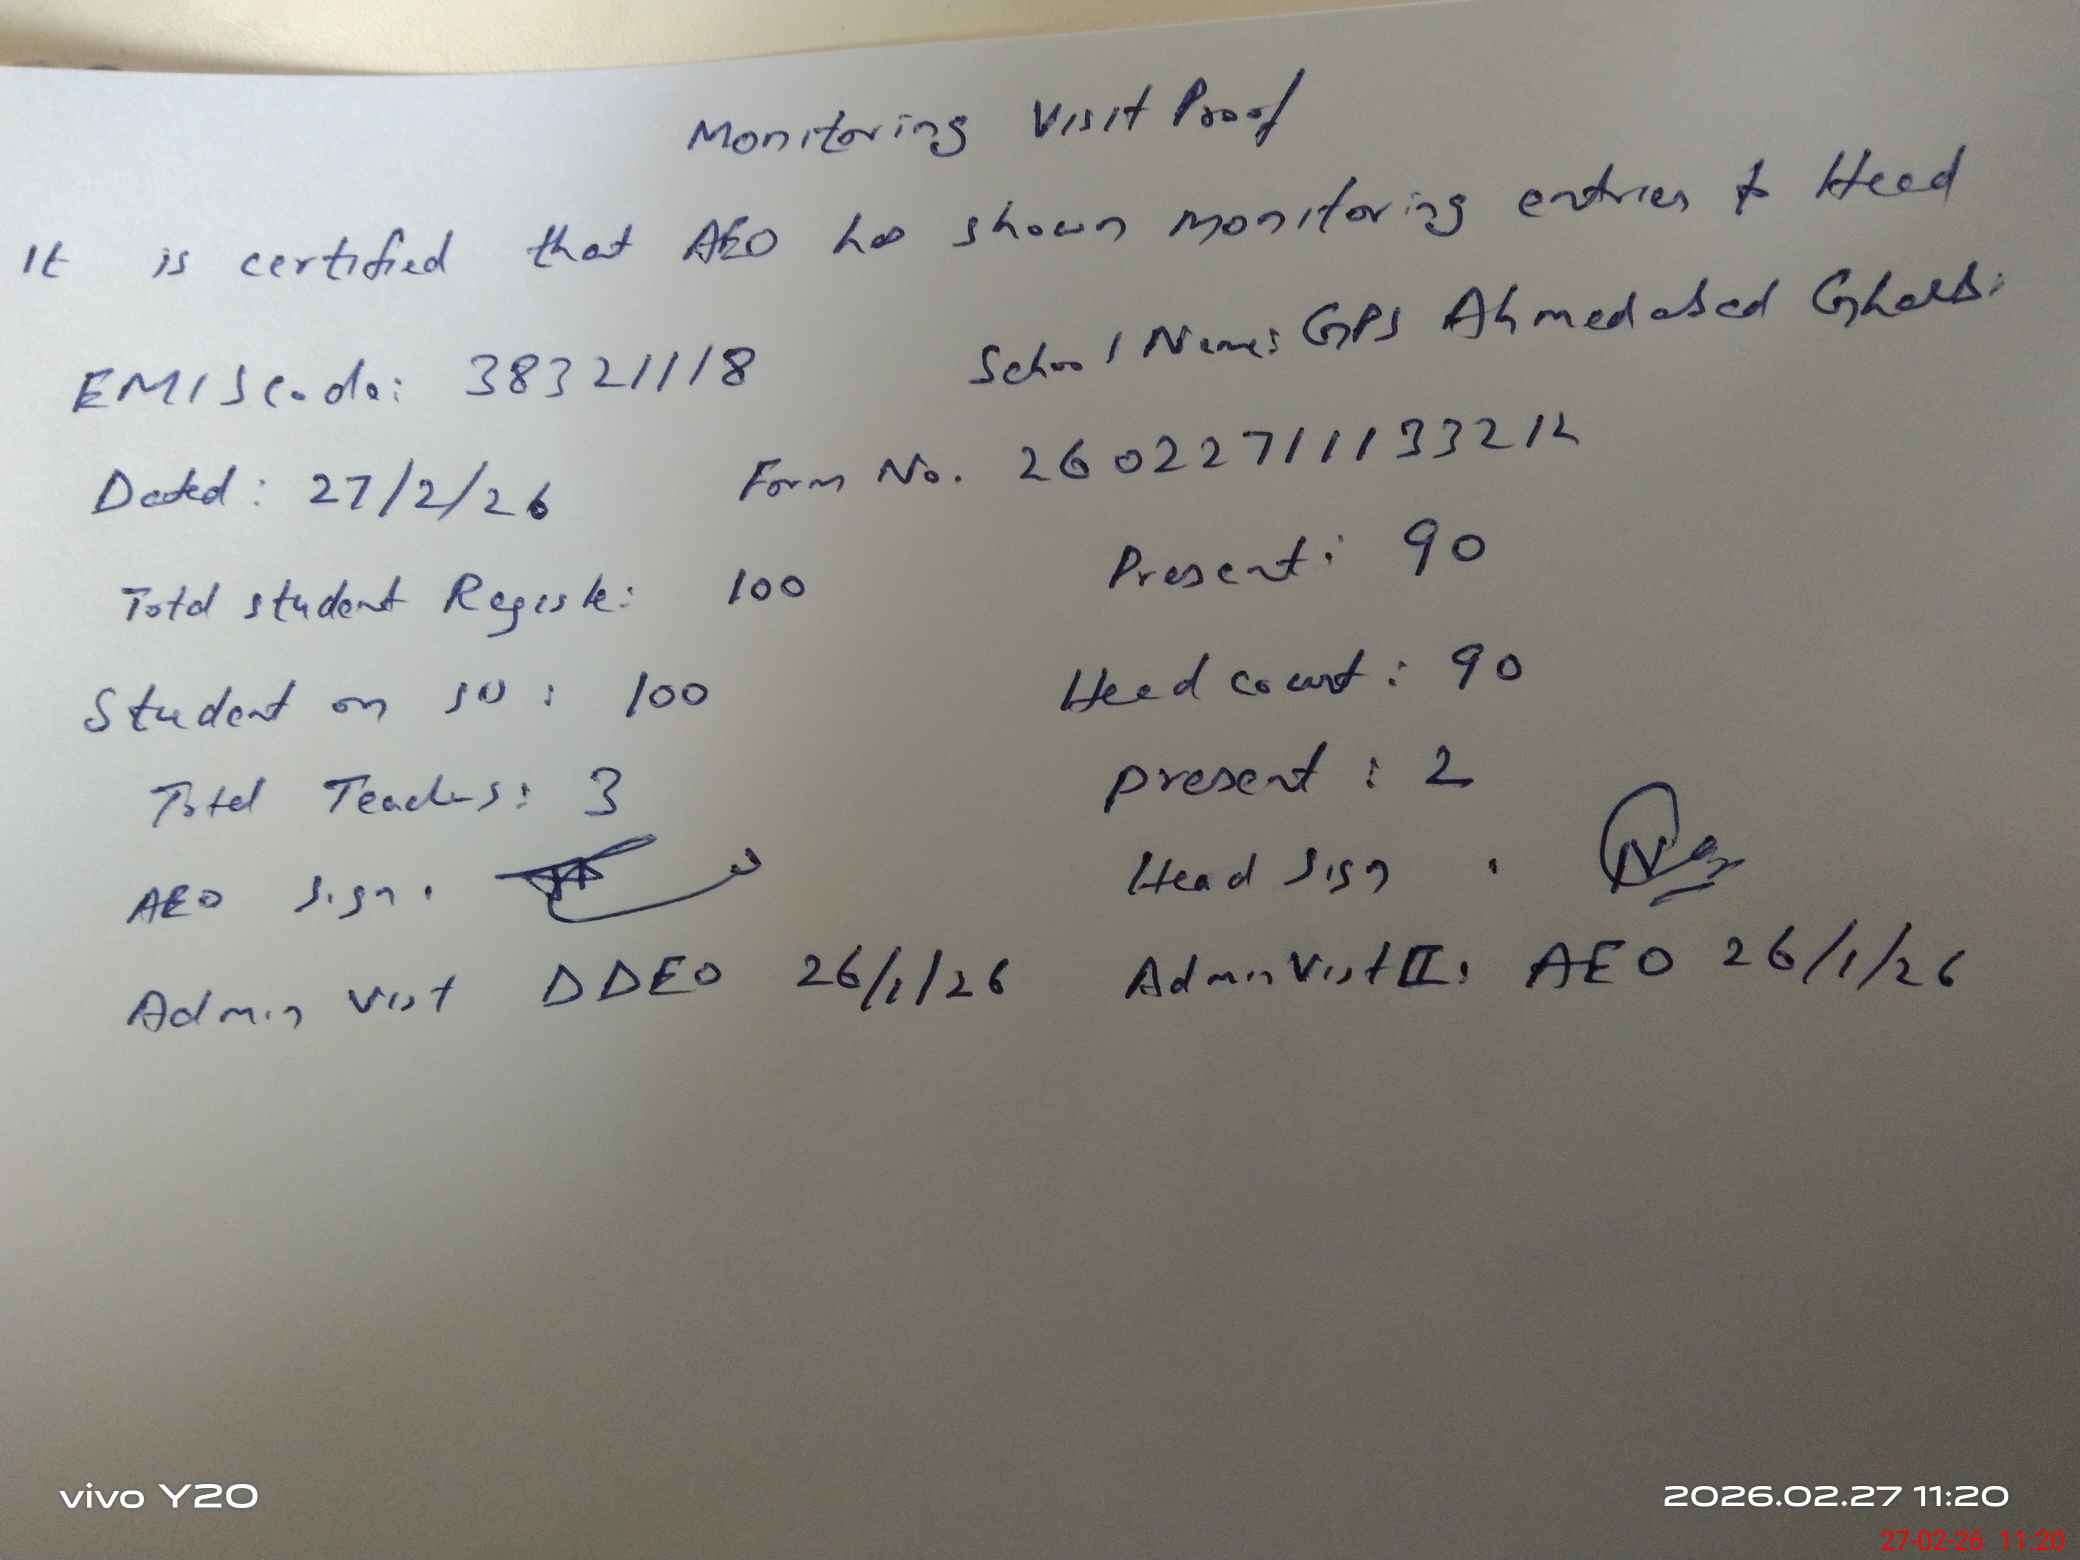 Monitoring Visit Proof
It is certified that AEO has shown monitoring entries to Head
EMIS Code: 38321118 School Name: GPS Ahmedabad Gharbi
Dated: 27/2/26 Form No. 260227111133212
Total student Register: 100 Present: 90
Student on : 100 Head count: 90
Total Teachers: 3 present: 2
AEO sign: Head sign:
Admin visit DDEO 26/1/26 Admin Visit II: AEO 26/1/26
vivo Y20 2026.02.27 11:20
27-02-26 11:20